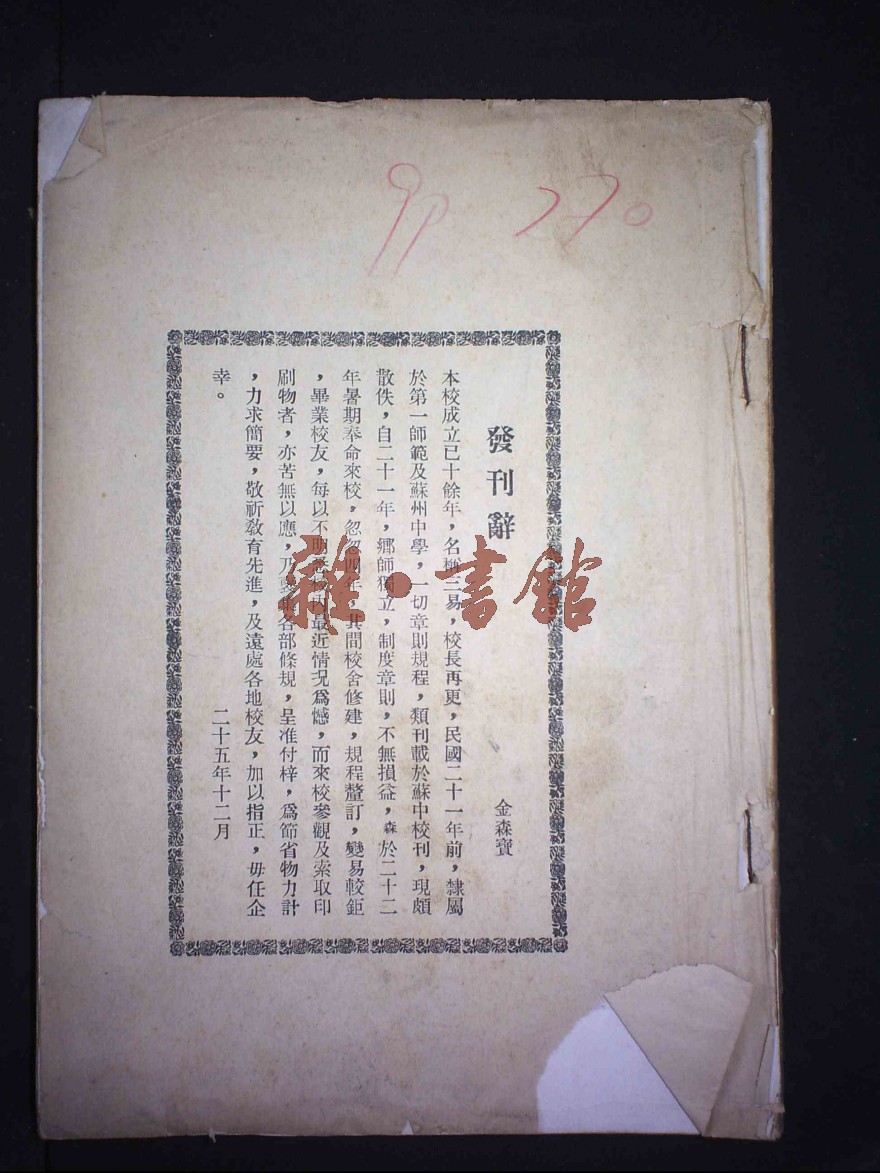 99 270
發刊辭
金森寶
本校成立已十餘年，名稱三易，校長再更，民國二十一年前，隸屬
於第一師範及蘇州中學，一切章則規程，類刊載於蘇中校刊，現頗
散佚，自二十一年，鄉師獨立，制度章則，不無損益，森於二十二
年暑期奉命來校，忽忽四年，其間校舍修建，規程釐訂，變易較鉅
，畢業校友，每以不明 校內最近情況爲憾，而來校參觀及索取印
刷物者，亦苦無以應，乃 各部條規，呈准付梓，爲節省物力計
，力求簡要，敬祈教育先進，及遠處各地校友，加以指正，毋任企
幸。
二十五年十二月
雜·書館